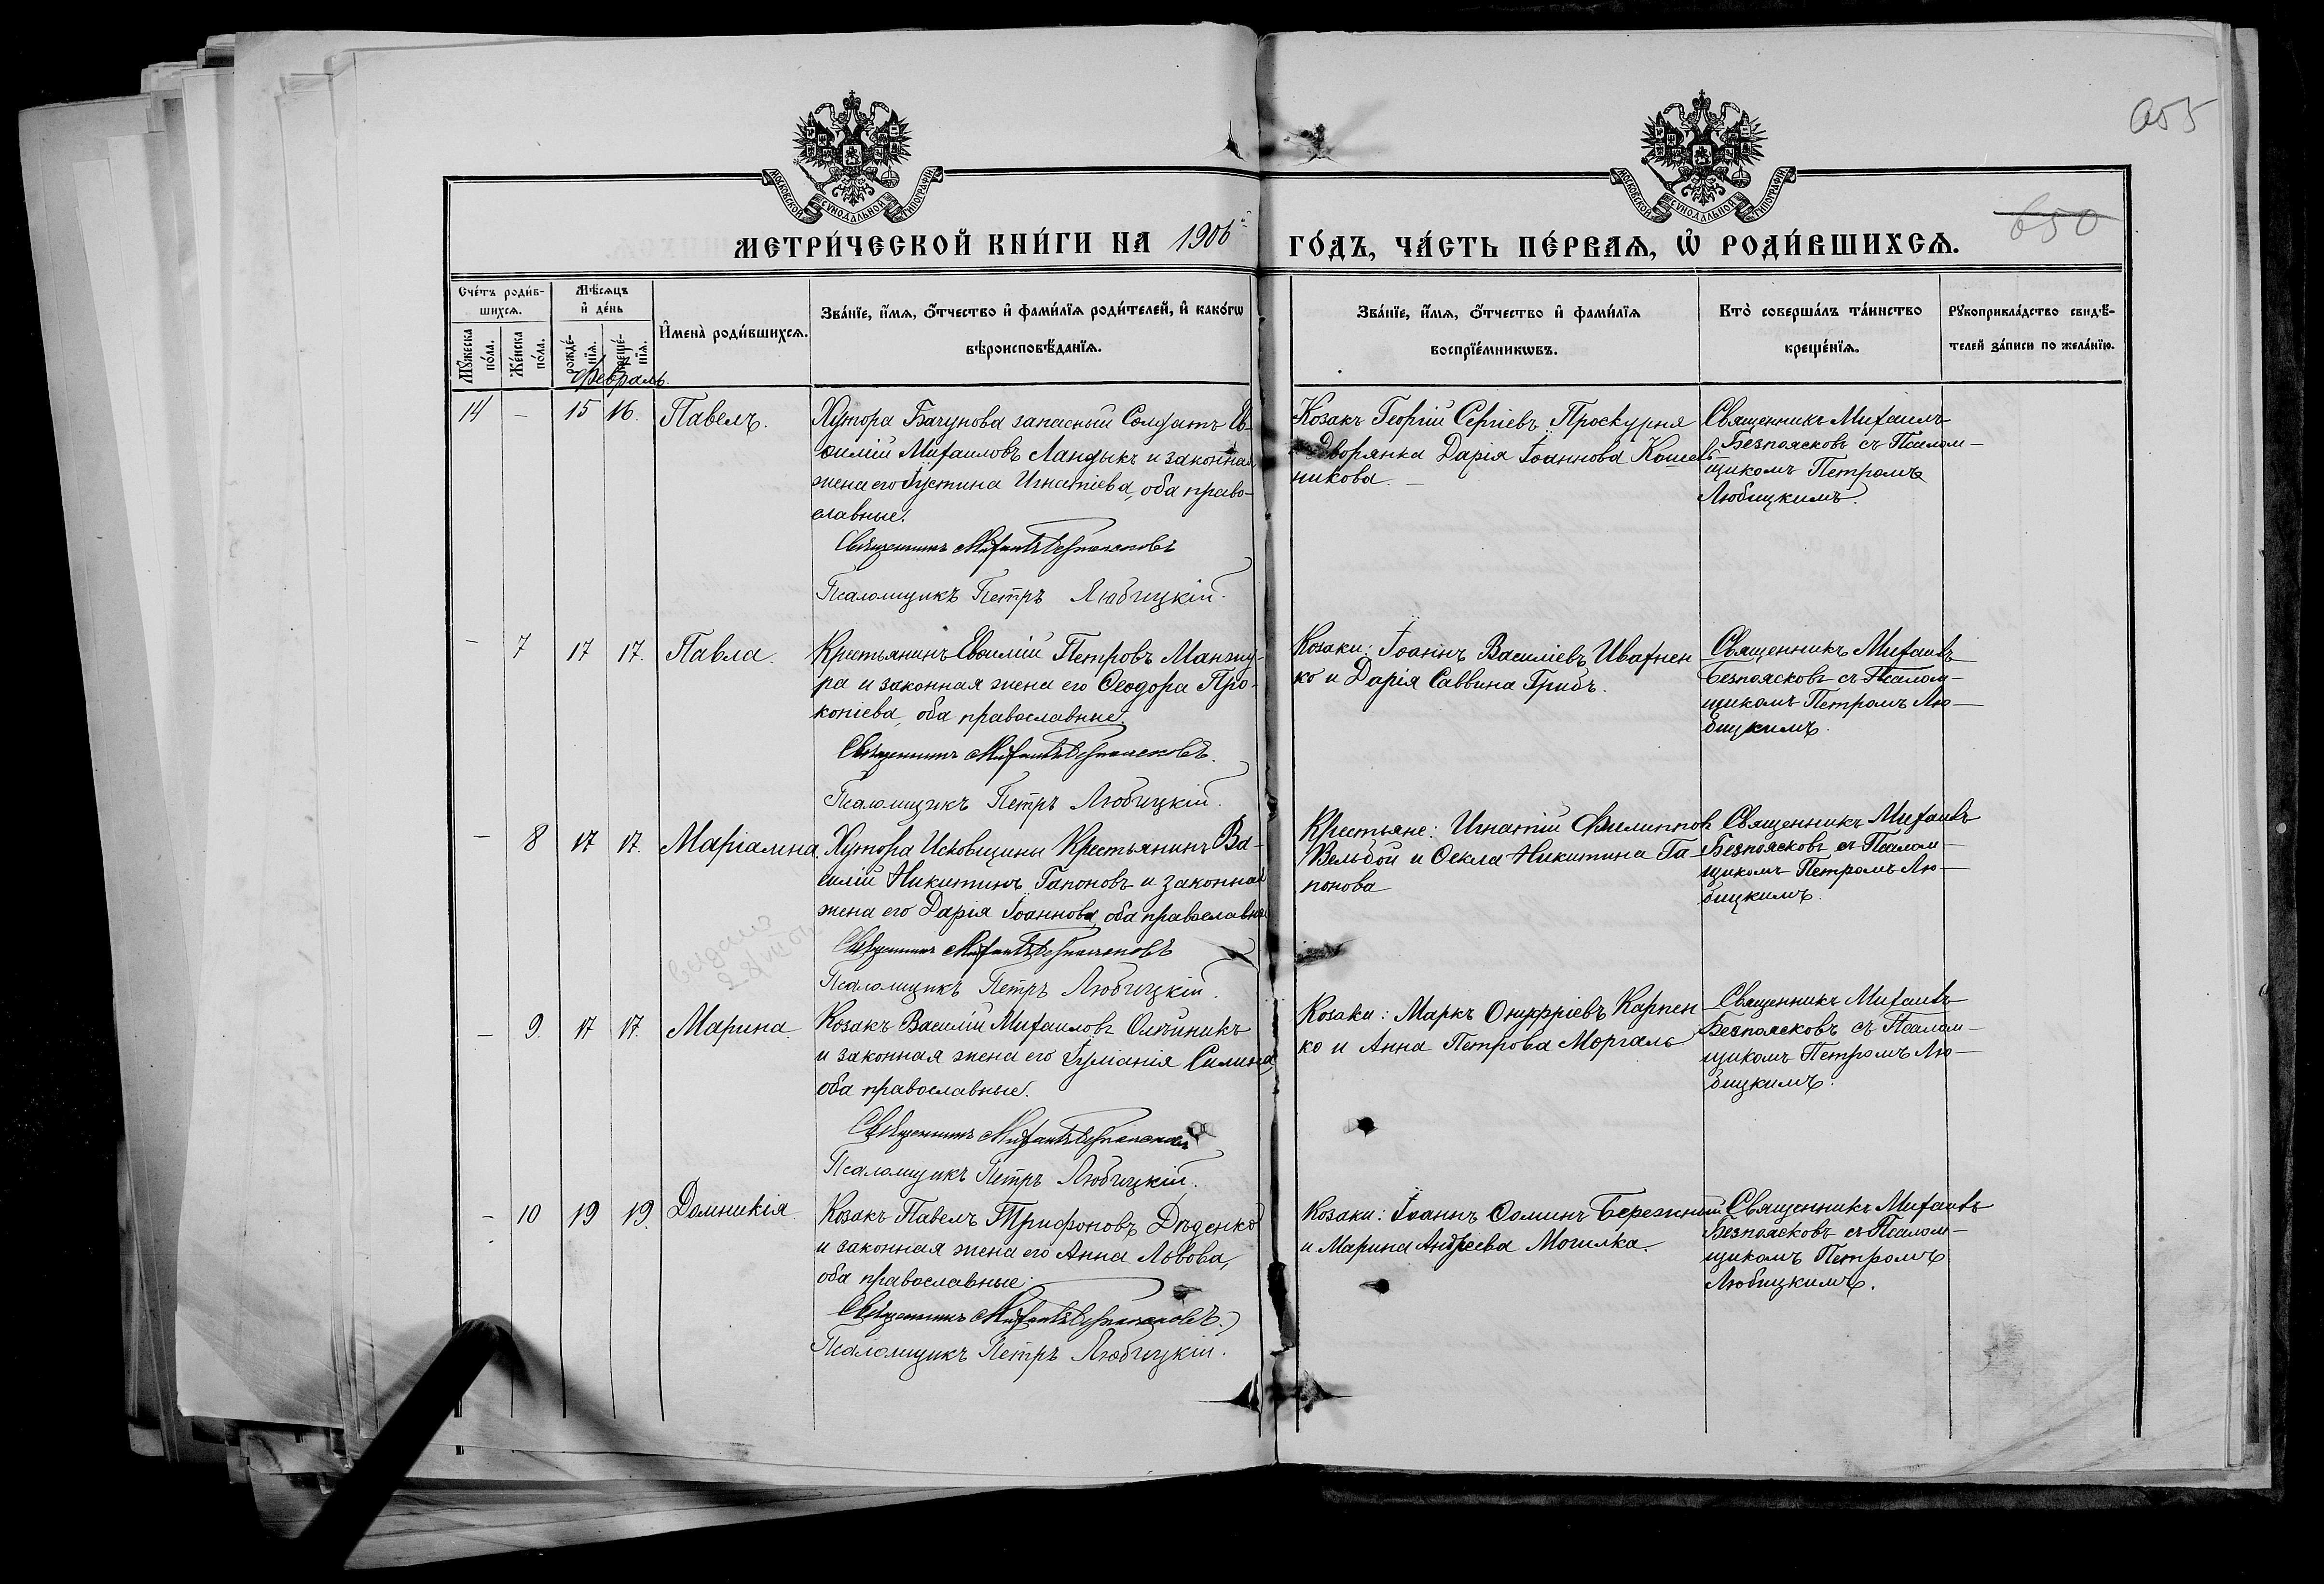 655
650
МОСКОВСКОЙ СѴНОДАЛЬНОЙ ТИПОГРАФІИ
МОСКОВСКОЙ СѴНОДАЛЬНОЙ ТИПОГРАФІИ
МЕТРИ́ЧЕСКОЙ КНИ́ГИ НА 1906 ГО́ДЪ, ЧА́СТЬ ПЕ́РВАѦ, Ѡ҆ РОДИ́ВШИХСѦ.
Сче́тъ роди́вшихсѧ.
Мꙋ́жеска по́ла.
Же́нска по́ла.
Мѣ́сѧцъ и҆ де́нь
рожде́нїѧ.
креще́нїѧ.
И҆мена̀ роди́вшихсѧ.
Зва́нїе, и҆́мѧ, ѻ҆́тчество и҆ фами́лїѧ роди́телей, и҆ како́гѡ
вѣроисповѣ́данїѧ.
Зва́нїе, и҆́мѧ, ѻ҆́тчество и҆ фами́лїѧ
воспрїе́мникѡвъ.
Кто̀ соверша́лъ та́инство
креще́нїѧ.
Рꙋкоприкла́дство свидѣ́-
телей за́писи по жела́нїю.
Февраль.
14 — 15 16. Павелъ.
Хутора Бачунова запасный Солдатъ Ев-
ѳимій Михаиловъ Ландыкъ и законная
жена его Іустина Игнатіева, оба право-
славные.
Священникъ Михаилъ Безпоясковъ
Псаломщикъ Петръ Любицкій.
Козакъ Георгій Сергіевъ Проскурня
Дворянка Дарія Іоаннова Кошев-
никова. —
Священникъ Михаилъ
Безпоясковъ съ Псалом-
щикомъ Петромъ
Любицкимъ.
— 7 17 17. Павла.
Крестьянинъ Евѳимій Петровъ Манжу-
ра и законная жена его Ѳеодора Про-
копіева, оба православные.
Священникъ Михаилъ Безпоясковъ.
Псаломщикъ Петръ Любицкій.
Козаки: Іоаннъ Василіевъ Ивахнен
ко и Дарія Саввина Грибъ.
Священникъ Михаилъ
Безпоясковъ съ Псалом-
щикомъ Петромъ Лю-
бицкимъ.
— 8 17 17. Маріамна.
Хутора Исковщины Крестьянинъ Ва-
силій Никитинъ Гапоновъ и законная
жена его Дарія Іоаннова, оба православные
Священникъ Михаилъ Безпоясковъ
Псаломщикъ Петръ Любицкій.
Крестьяне: Игнатій Филиппов
Вельбой и Ѳекла Никитина Га-
понова
Священникъ Михаилъ
Безпоясковъ съ Псалом-
щикомъ Петромъ Лю-
бицкимъ.
выдано
— 9. 17 17. Марина.
Козакъ Василій Михаиловъ Олѣйникъ
и законная жена его Іуліанія Силина,
оба православные.
Священникъ Михаилъ Безпоясковъ
Псаломщикъ Петръ Любицкій.
Козаки: Маркъ Онуфріевъ Карпен
ко и Анна Петрова Моргаль
Священникъ Михаилъ
Безпоясковъ съ Псалом-
щикомъ Петромъ Лю-
бицкимъ.
— 10 19 19. Домникія.
Козакъ Павелъ Трифоновъ Дѣденко
и законная жена его Анна Львова,
оба православные.
Священникъ Михаилъ Безпоясковъ.
Псаломщикъ Петръ Любицкій.
Козаки: Іоаннъ Ѳоминъ Бережный
и Марина Андреева Могилка.
Священникъ Михаилъ
Безпоясковъ съ Псалом-
щикомъ Петромъ
Любицкимъ.